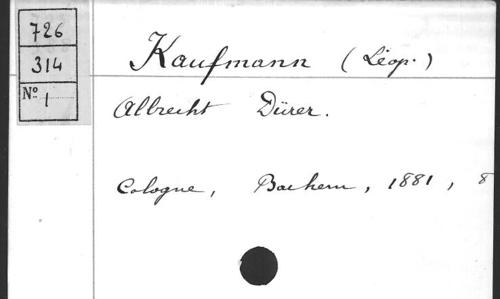 726
314
Nº 1
Kaufmann (Léop.)
Albrecht Dürer.
Cologne, Bachem, 1881, 8